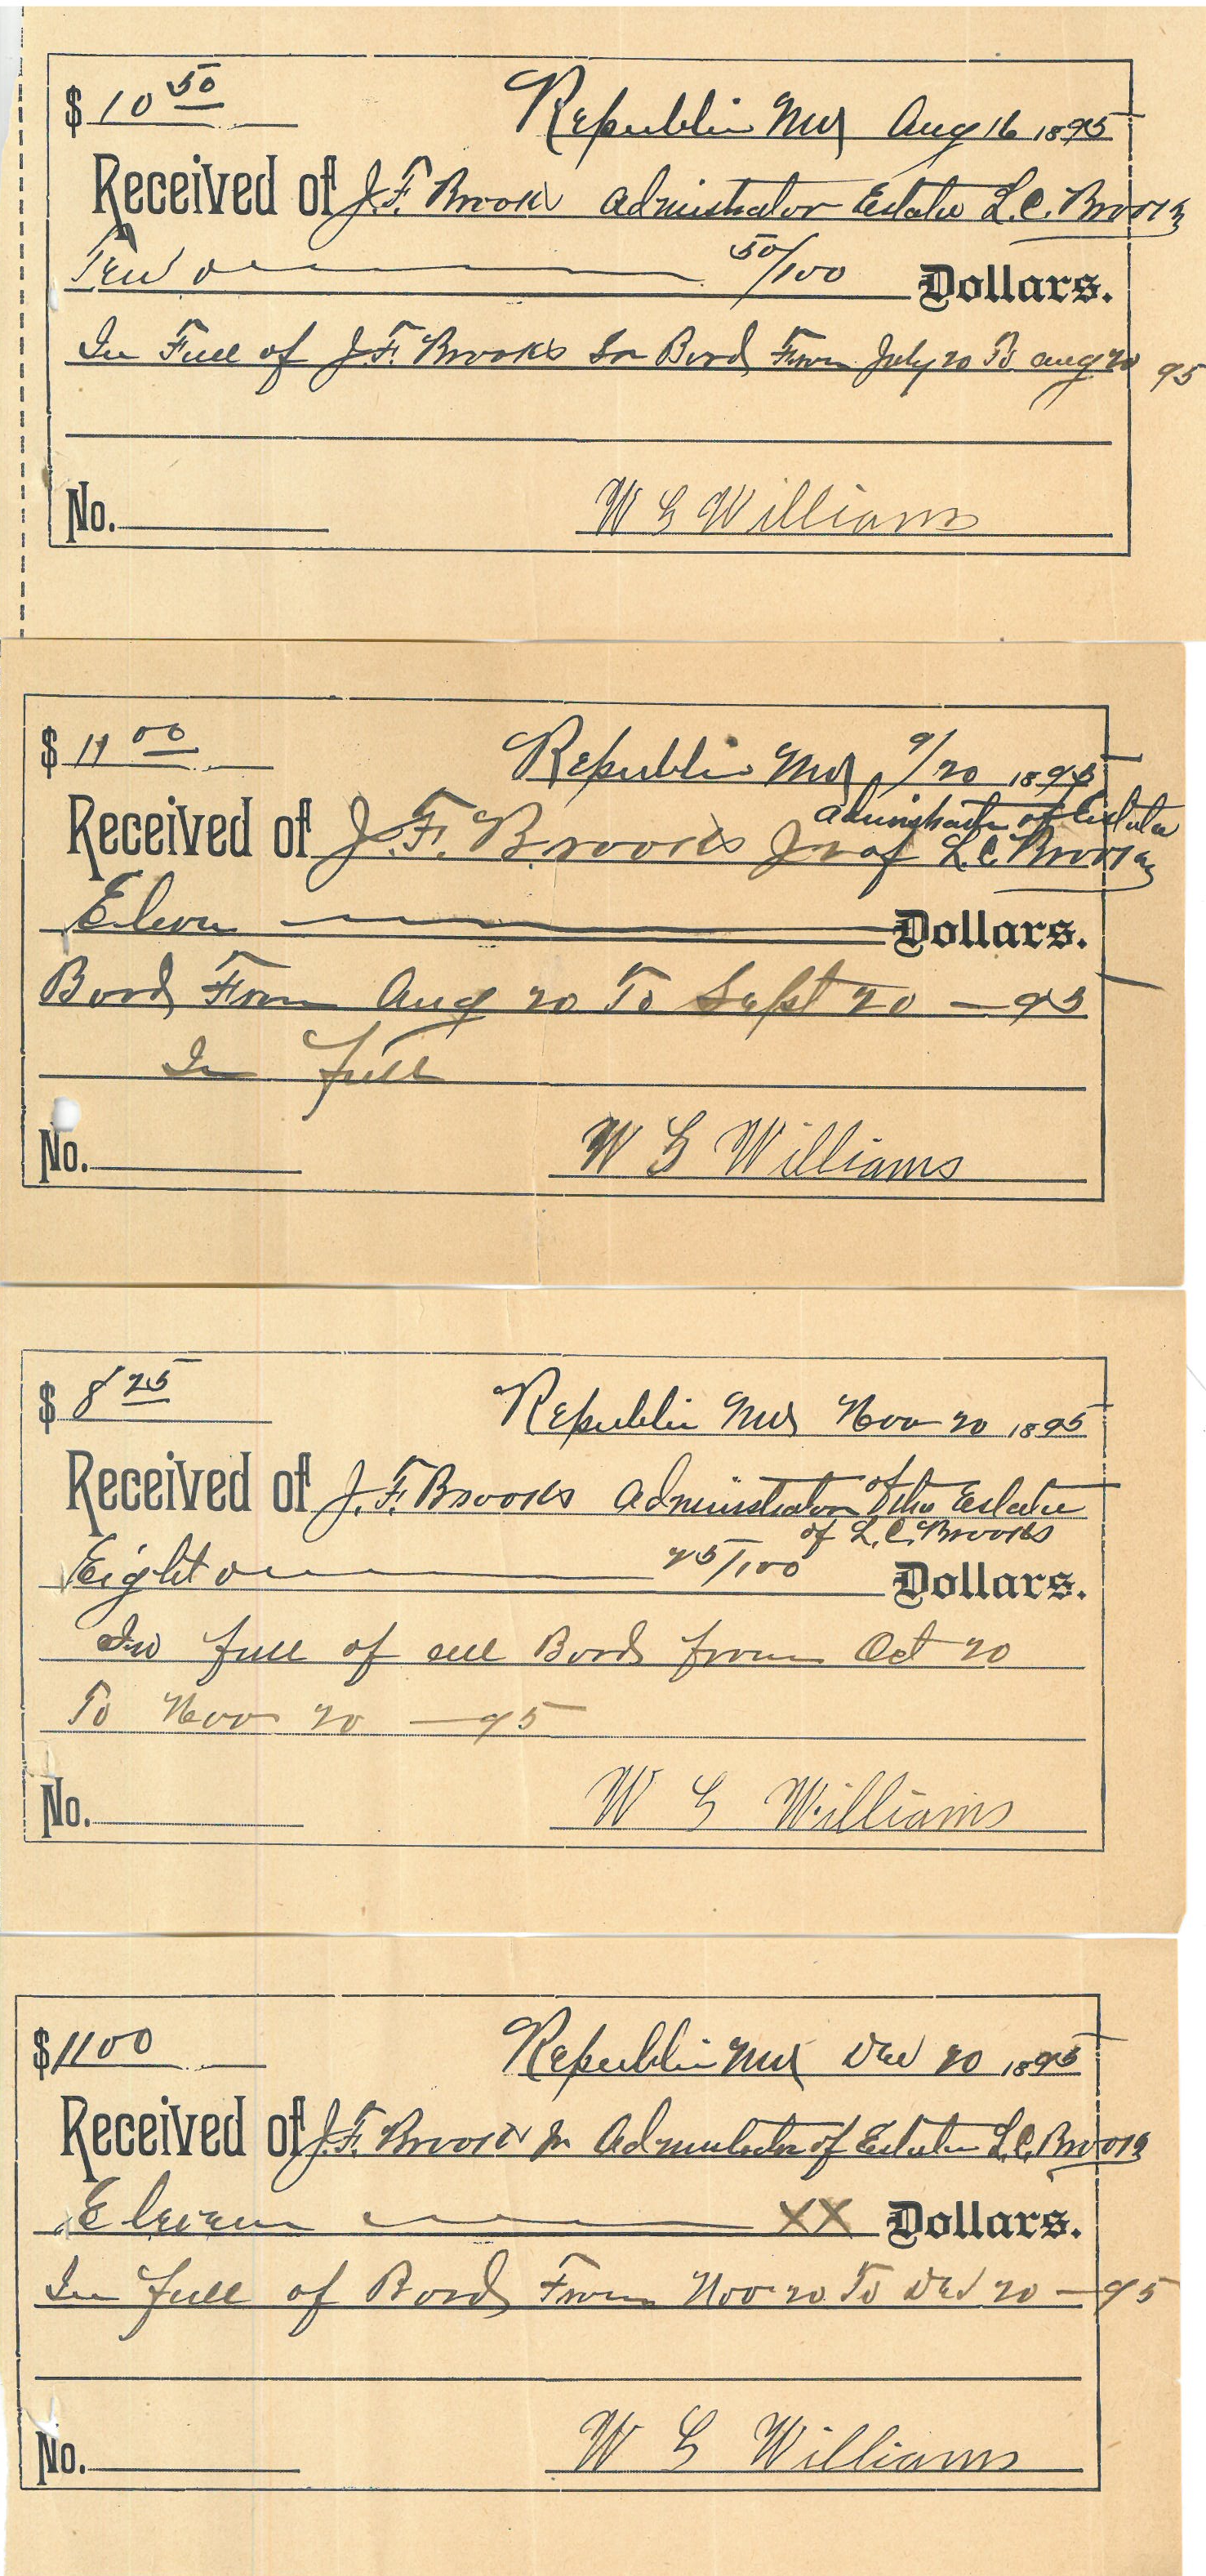 $ 10 50 Republic Mo Aug 16 1895
Received of J.F. Brooks Admistrator Estate L.C. Brooks
Ten 50/100 Dollars.
In Full of J.F. Brooks Bord From July 20 To Aug 20 95
No. W G Williams
$ 11 00 Republic Mo 9/20 1895
Administrator of Estate
Received of J.F. Brooks Jr of L.C. Brooks
Eleven Dollars.
Bord From Aug 20 To Sept 20 — 95
In full
No. W G Williams
$ 8 25 Republic Mo Nov 20 1895
Received of J.F. Brooks Administrator of the Estate
of L.C. Brooks
Eight 25/100 Dollars.
In full of all Bord from Oct 20
To Nov 20 — 95
No. W G Williams
$ 11 00 Republic Mo Dec 20 1895
Received of J.F. Brooks Jr Administrator of Estate L.C. Brooks
Eleven XX Dollars.
In full of Bord From Nov 20 To Dec 20 — 95
No. W G Williams